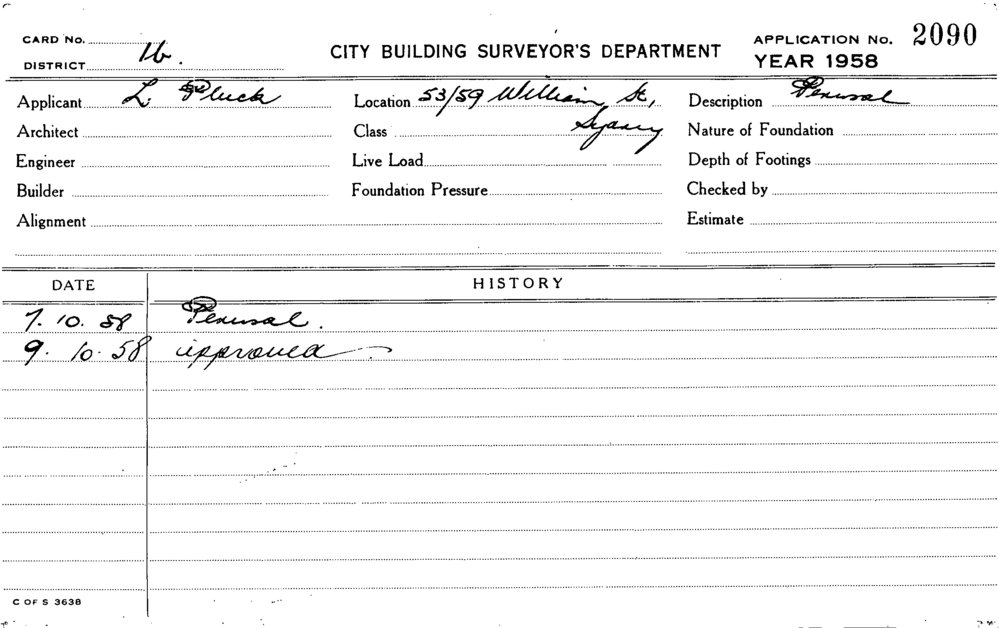 CARD No.
DISTRICT 16.
CITY BUILDING SURVEYOR'S DEPARTMENT
APPLICATION No. 2090
YEAR 1958
Applicant L. Pluck
Location 53/59 William St,
Sydney
Description Perusal
Architect
Class
Nature of Foundation
Engineer
Live Load
Depth of Footings
Builder
Foundation Pressure
Checked by
Alignment
Estimate
DATE HISTORY
7. 10. 58 Perusal.
9. 10. 58 approved
C OF S 3638